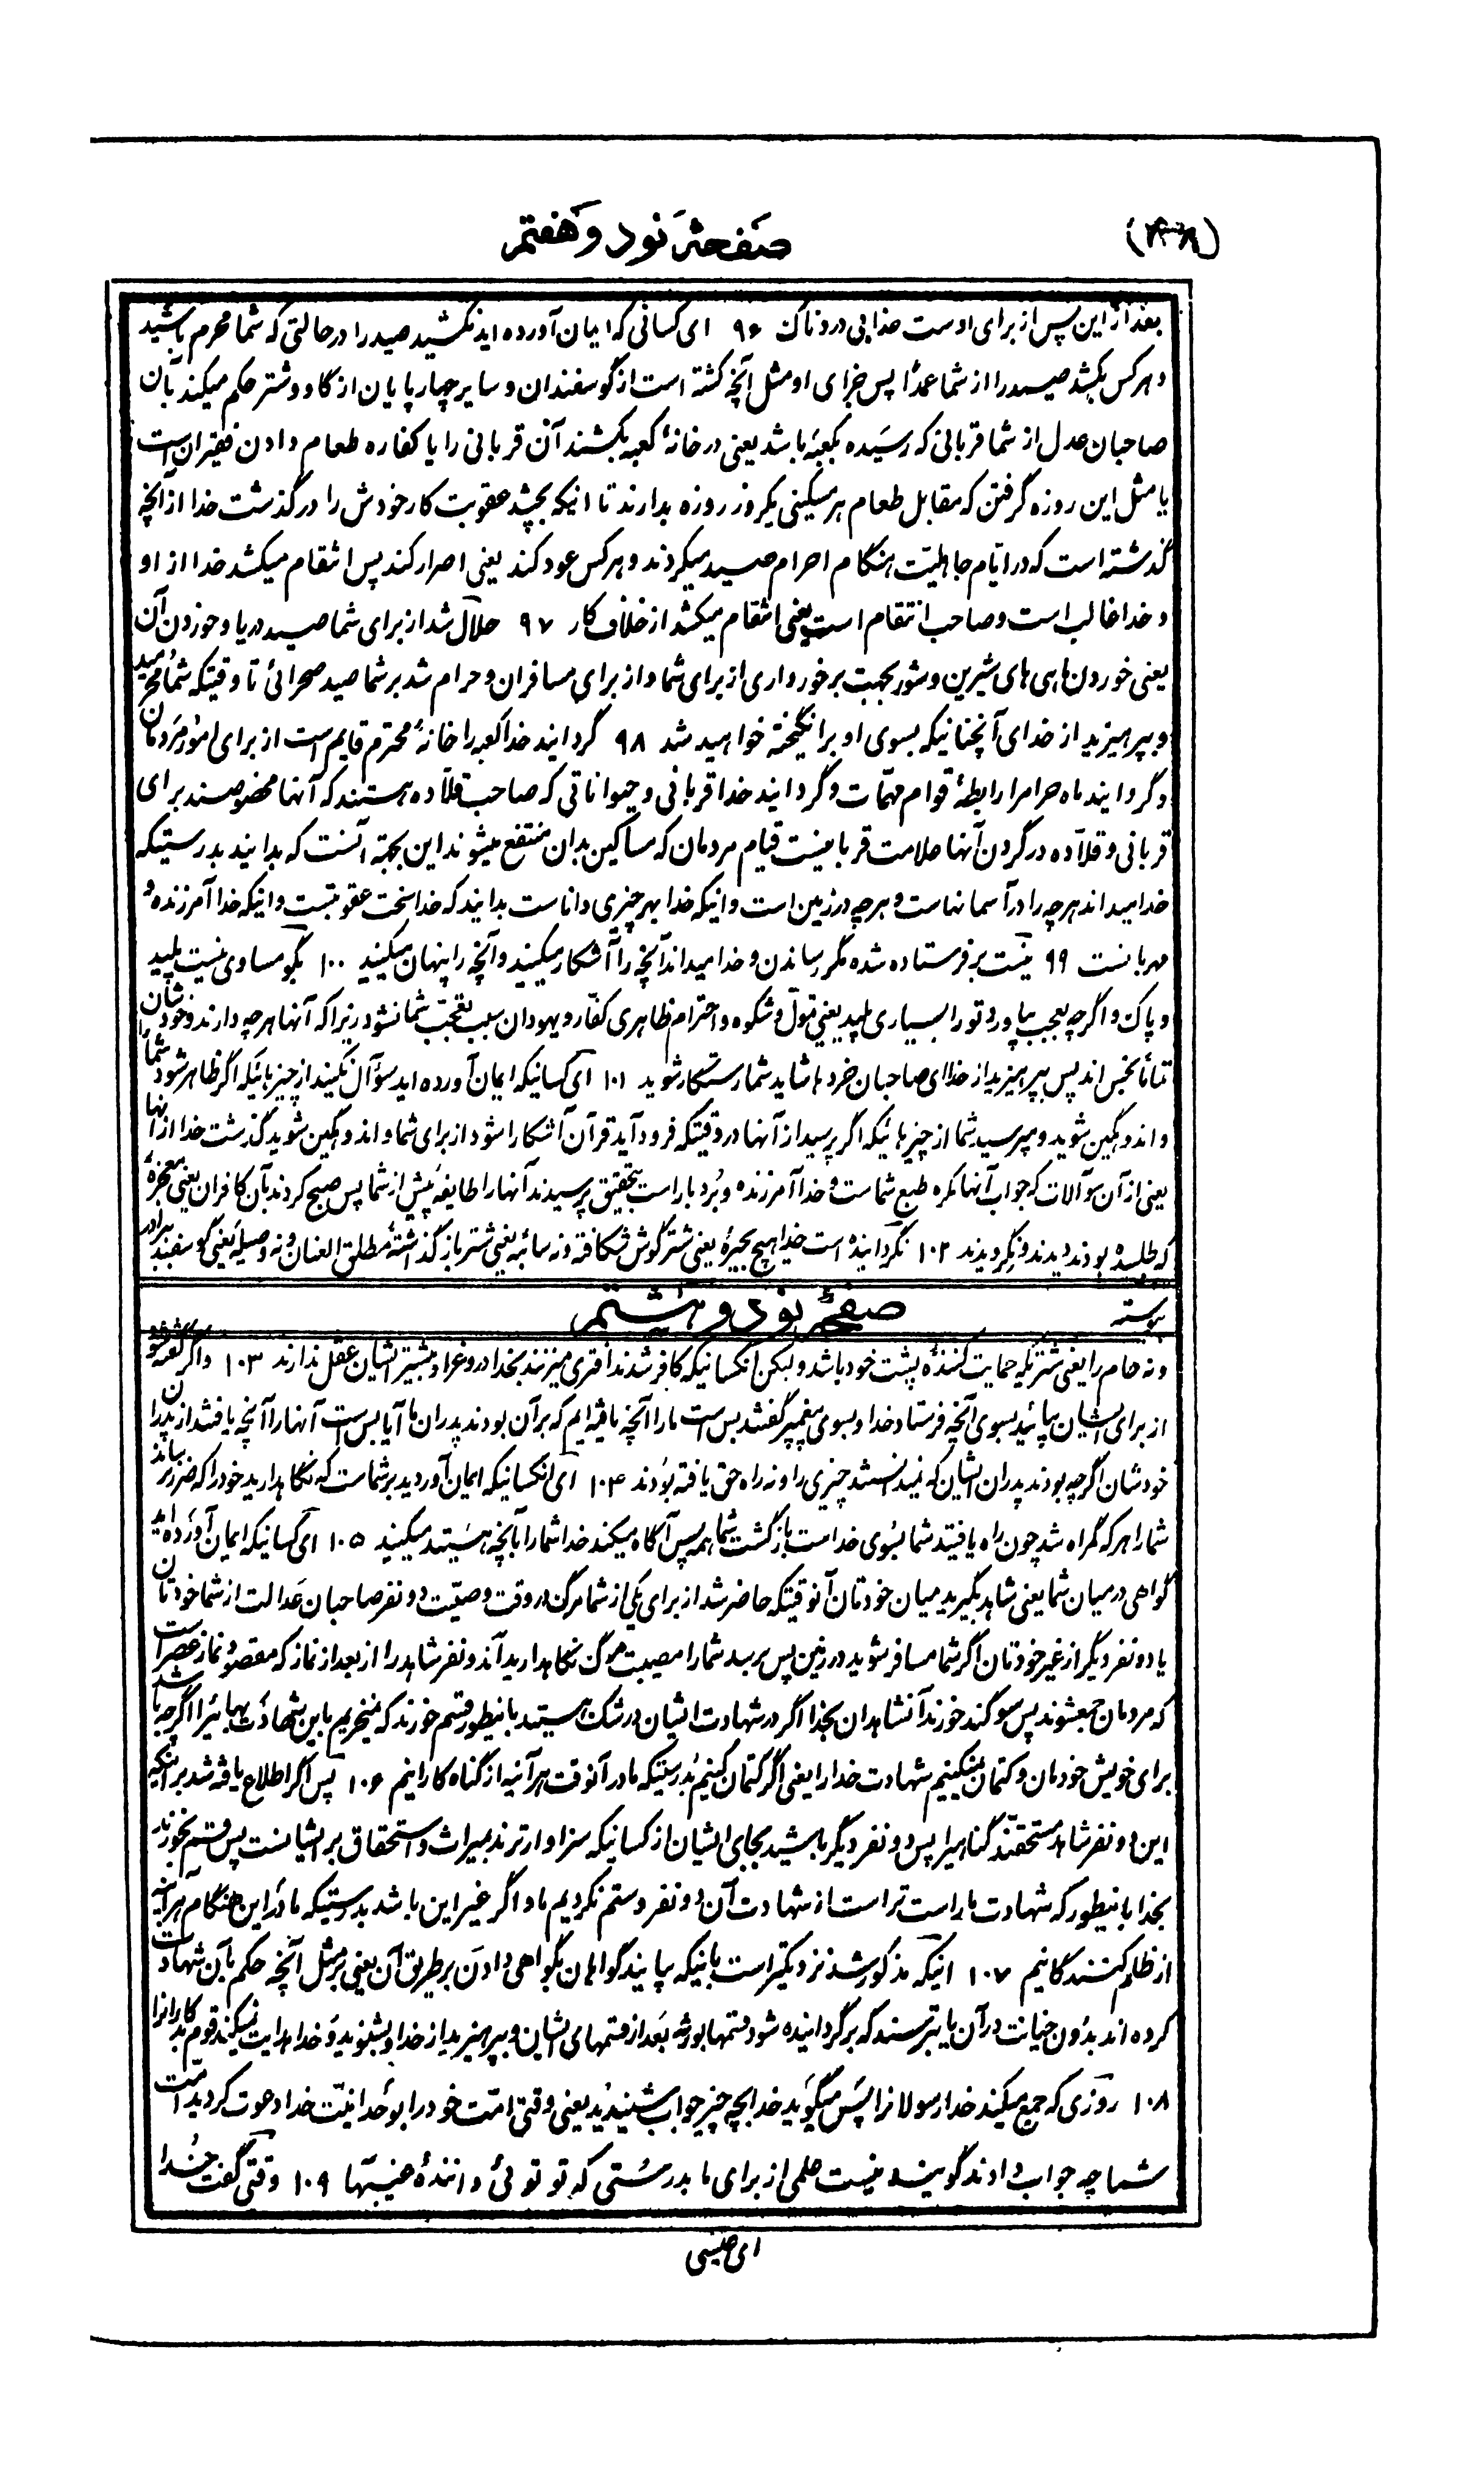 صفحهٔ نود و هفتم
بعد از این پس از برای اوست عذابی دردناک ۹۶ ای کسانی که ایمان آورده اید نکشید صید را در حالتی که شما محرم باشید
و هر کس بکشد صید را از شما عمداً پس جزای او مثل آنچه کشته است از گوسفندان و سایر چهار پایان از گاو و شتر حکم میکند بآن
صاحبان عدل از شما قربانی که رسیده بکعبه باشد یعنی در خانهٔ کعبه بکشند آن قربانی را یا کفاره طعام دادن فقیران است
یا مثل این روزه گرفتن که مقابل طعام هر مسکینی یکروز روزه بدارند تا اینکه بچشد عقوبت کار خودش را در گذشت خدا از آنچه
گذشته است که در ایام جاهلیت هنگام احرام صید میکردند و هر کس عود کند یعنی اصرار کند پس انتقام میکشد خدا از او
و خدا غالب است و صاحب انتقام است یعنی انتقام میکشد از خلاف کار ۹۷ حلال شد از برای شما صید دریا و خوردن آن
یعنی خوردن ماهی های شیرین و شور بجهت برخورداری از برای شما و از برای مسافران و حرام شد بر شما صید صحرائی تا وقتیکه شما محرمید
و بپرهیزید از خدای آنچنانیکه بسوی او برانگیخته خواهید شد ۹۸ گردانید خدا کعبه را خانهٔ محترم قایم است از برای امور مردمان
و گردانید ماه حرام را رابطهٔ قوام مهمّات و گردانید خدا قربانی و حیواناتی که صاحب قلاّده هستند که آنها مخصوصند برای
قربانی و قلاّده در گردن آنها علامت قربانیست قیام مردمان که مساکین بدان منتفع میشوند این بجهة آنست که بدانید بدرستیکه
خدا میداند هر چه را در آسمانهاست و هر چه در زمین است و اینکه خدا بهر چیزی داناست بدانید که خدا سخت عقوبتست و اینکه خدا آمرزنده و
مهربانست ۹۹ نیست بر فرستاده شده مگر رساندن و خدا میداند آنچه را آشکار میکنید و آنچه را پنهان میکنید ۱۰۰ بگو مساوی نیست پلید
و پاک و اگر چه بعجب بیاورد تو را بسیاری پلید یعنی تموّل و شکوه و احترام ظاهری کفّار و یهودان سبب تعجّب شما نشود زیرا که آنها هر چه دارند و خودشان
تماماً نجس اند پس بپرهیزید از خدا ای صاحبان خردها شاید شما رستگار شوید ۱۰۱ ای کسانیکه ایمان آورده اید سؤآل نکنید از چیزهائیکه اگر ظاهر شود شما را
و اندوهگین شوید و مپرسید شما از چیزهائیکه اگر پرسید از آنها در وقتیکه فرود آید قرآن آشکارا شود از برای شما و اندوهگین شوید گذشت خدا از آنها
یعنی از آن سوآلات که جواب آنها مکره طبع شماست و خدا آمرزنده و بُردبار است بتحقیق پرسیدند آنها را طایفه پیش از شما پس صبح کردند بآن کافران یعنی معجزهٔ
که طلبیده بودند دیدند و نگرویدند ۱۰۲ نگردانیده است خدا هیچ بحیرهٔ یعنی شتر گوش شکافته و نه سائبه یعنی شتر باز گذاشتهٔ مطلق العنان و نه وصیله یعنی گوسفند ببرادر
پیوسته
صفحهٔ نود و هشتم
و نه حام را یعنی شتریکه حمایت کنندهٔ پشت خود باشد و لیکن آنکسانیکه کافر شدند افتری میزنند بخدا دروغرا و بیشتر ایشان عقل ندارند ۱۰۳ و اگر گفته شود
از برای ایشان بیائید بسوی آنچه فرستاد خدا و بسوی پیغمبر گفتند بس است ما را آنچه یافته ایم که بر آن بودند پدران ما آیا بس است آنها را آنچه یافتند از پدران
خودشان اگر چه بودند پدران ایشان که نمیدانستند چیزی را و نه راه حق یافته بودند ۱۰۴ ای آنکسانیکه ایمان آوردید بر شماست که نگاهدارید خود را که ضرر نرساند
شما را هر که گمراه شد چون راه یافتید شما بسوی خداست بازگشت شما همه پس آگاه میکند خدا شما را بآنچه هستید میکنید ۱۰۵ ای کسانیکه ایمان آورده اید
گواهی در میان شما یعنی شاهد بگیرید میان خودتان آنوقتیکه حاضر شد از برای یکی از شما مرگ در وقت وصیّت دو نفر صاحبان عدالت از شما خودتان
یا دو نفر دیگر از غیر خودتان اگر شما مسافر شوید در زمین پس برسد شما را مصیبت مرگ نگاهدارید آندو نفر شاهد را از بعد از نماز که مقصود نماز عصر است
که مردمان جمعشوند پس سوگند خورند آنشاهدان بخدا اگر در شهادت ایشان در شک هستید باینطور قسم خورند که نمیخریم باین شهادت بهائیرا اگر چه باشد
برای خویش خودمان و کتمان نمیکنیم شهادت خدا را یعنی اگر کتمان کنیم بدرستیکه ما در آنوقت هر آئینه از گناه کارانیم ۱۰۶ پس اگر اطلاع یافته شد بر اینکه
این دو نفر شاهد مستحقّند گناهیرا پس دو نفر دیگر باشید بجای ایشان از کسانیکه سزاوارترند بمیراث و استحقاق بر ایشانست پس قسم بخورند
بخدا باینطور که شهادت ما راست تر است از شهادت آن دو نفر و ستم نکردیم ما و اگر غیر این باشد بدرستیکه ما در این هنگام هر آینه
از ظلم کنندگانیم ۱۰۷ اینکه مذکور شد نزدیکتر است باینکه بیایند گواهان بگواهی دادن بر طریق آن یعنی بر مثل آنچه حکم بآن شهادت
کرده اند بدون خیانت در آن یا بترسند که برگردانیده شود قسمها بورثه بعد از قسمهای ایشان و بپرهیزید از خدا و بشنوید و خدا هدایت نمیکند قوم بدکارانرا
۱۰۸ روزی که جمع میکند خدا رسولانرا پس میگوید خدا بچه چیز جواب شنیدید یعنی وقتی امّت خود را بوحدانیّت خدا دعوت کردید امّت
شما چه جواب دادند گویند نیست علمی از برای ما بدرستی که تو توئی دانندهٔ غیبها ۱۰۹ وقتی گفت خدا
ای عیسی